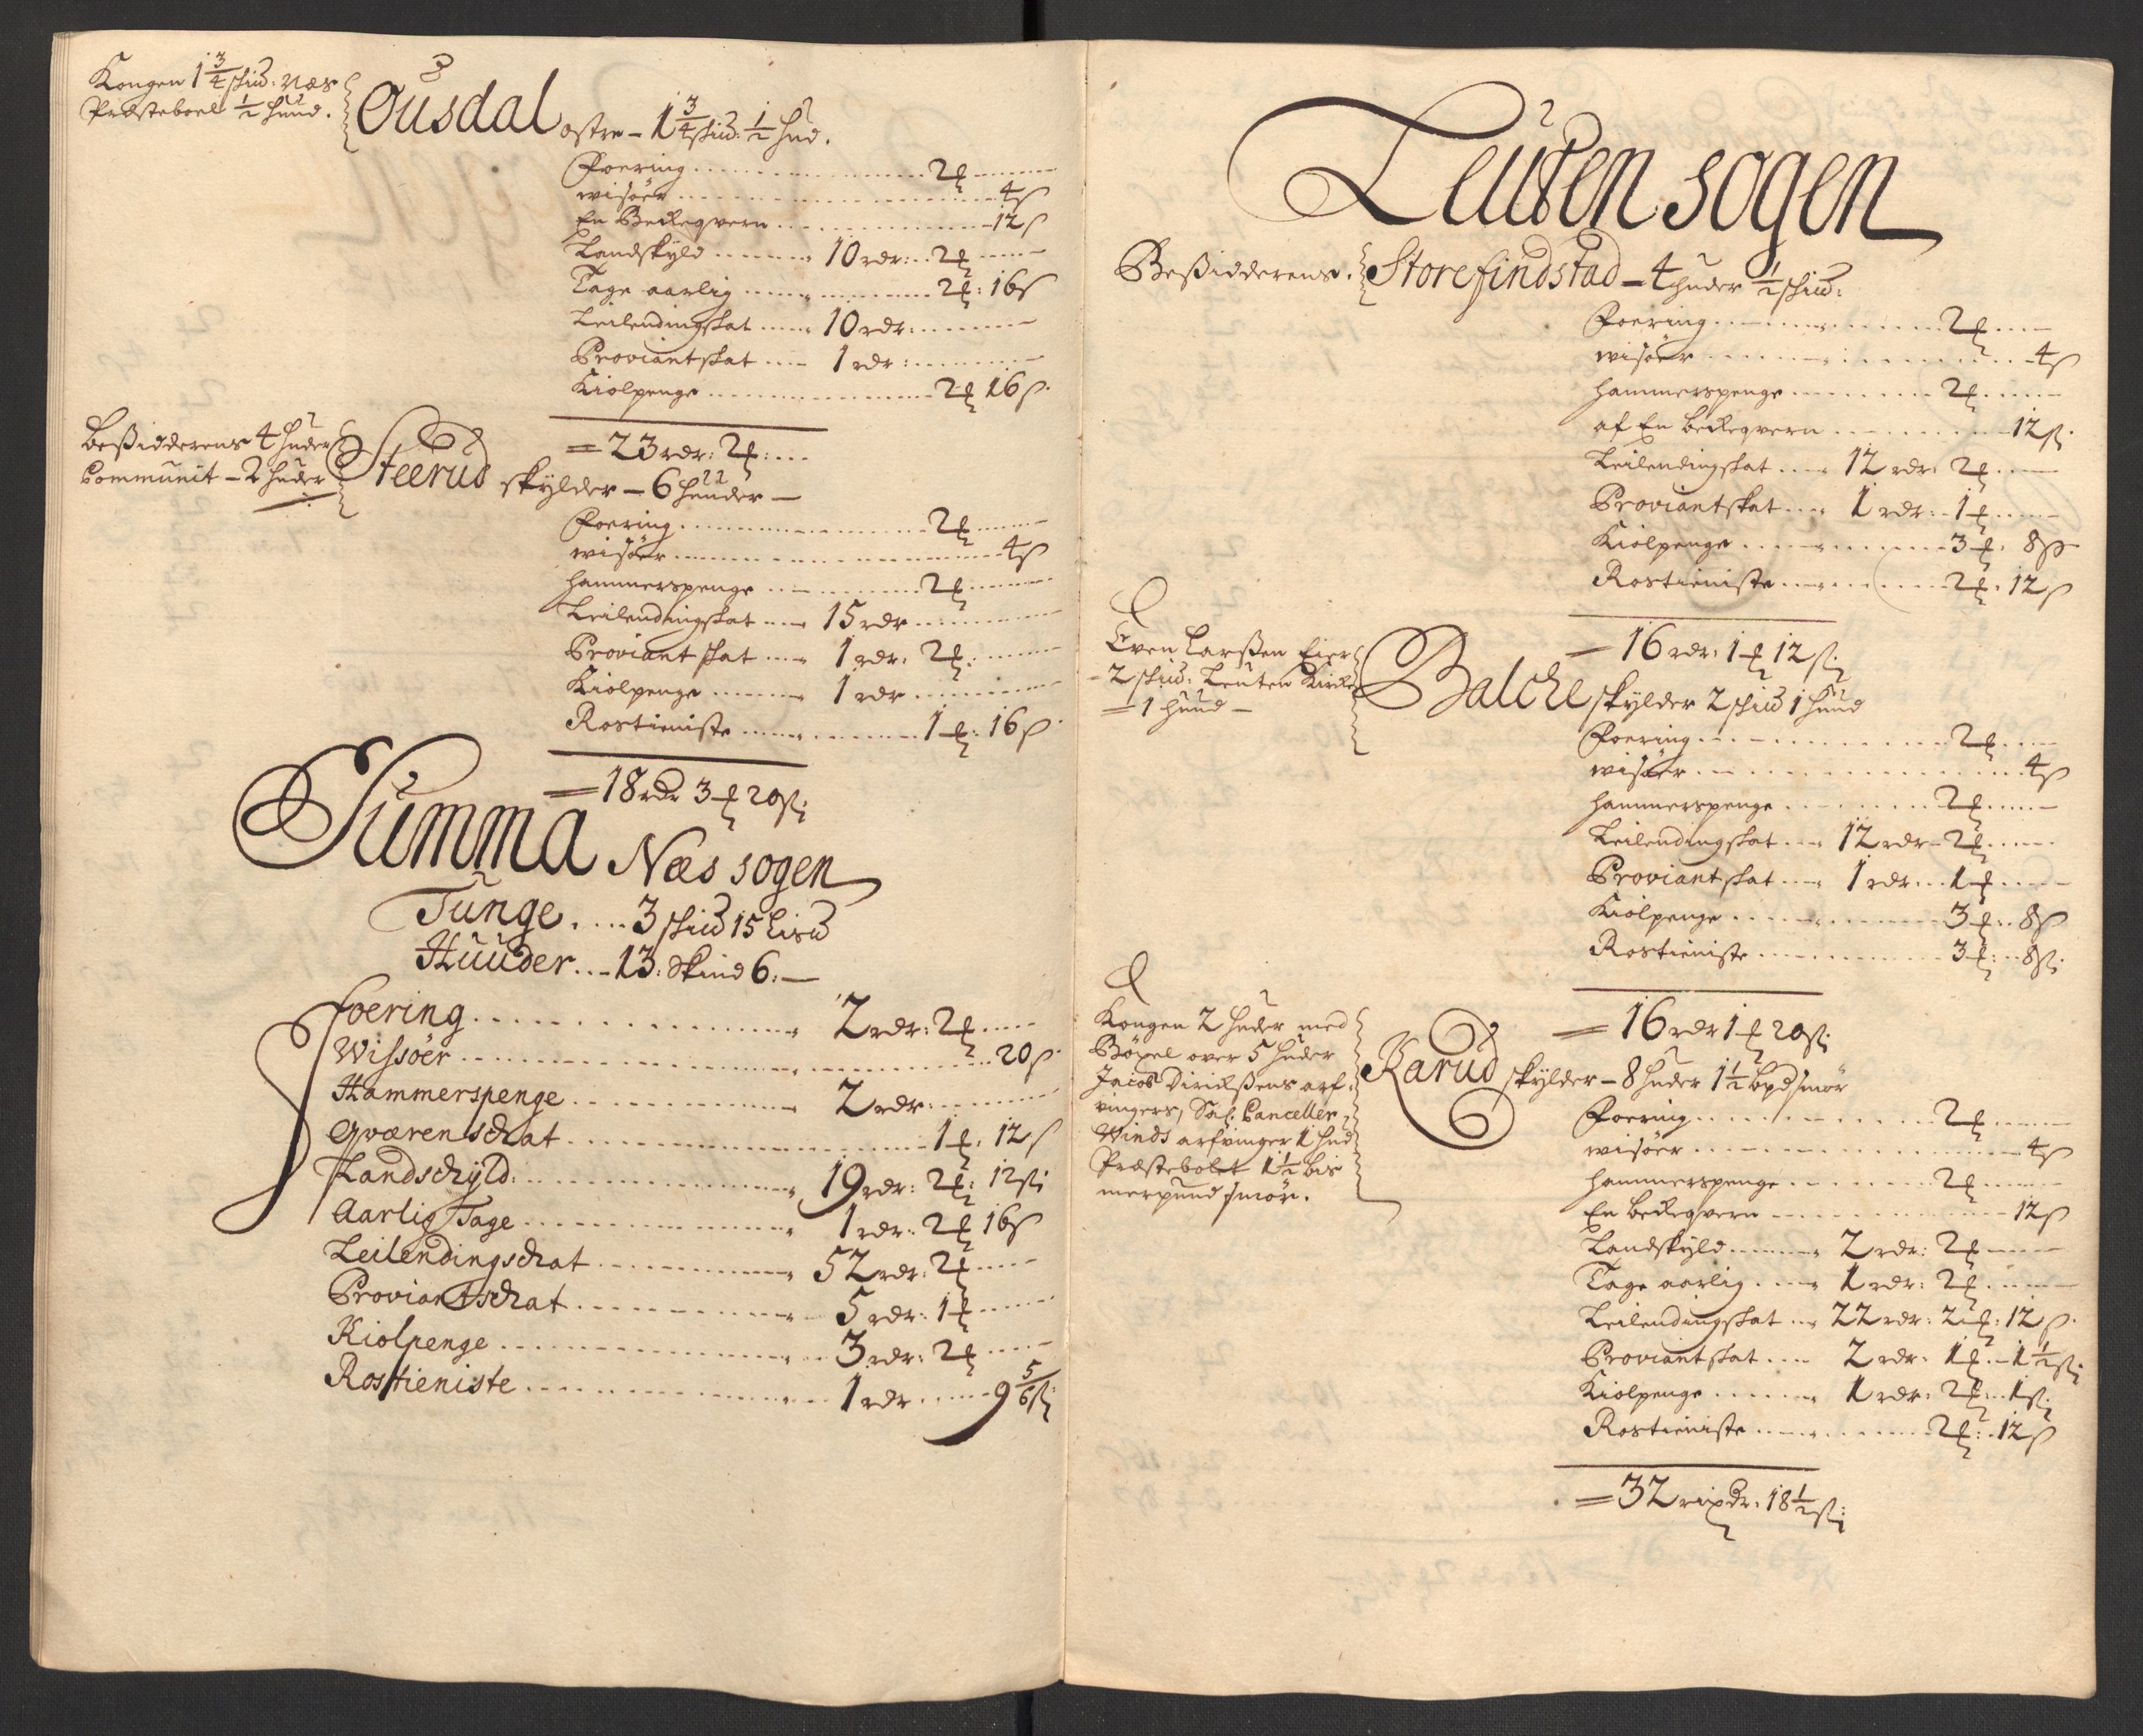 Kongen 1 3/4 skiud: Næs
Præsteboel 1/2 hund.
Ousdal østre - 1 3/4 skiud: 1/2 hud.
Foering 2 ort
wisøer 4 s
En Beckeqvern 12 s
Landskyld 10 rdr: 2 ort
Tage aarlig 2 ort: 16 s
Leilendingskat 10 rdr:
Proviantskat 1 rdr:
Kiolpenge 2 ort 16 s.
= 23 rdr: 2 ort:
Beßidderens 4 huder
Communit - 2 huder
Steerud skylder - 6 huuder -
Foering 2 ort
wisøer 4 s
hammerspenge 2 ort
Leilendingskat 15 rdr
Proviantskat 1 rdr. 2 ort.
Kiolpenge 1 rdr
Rostieniste 1 ort: 16 s.
= 18 rdr 3 ort 20 s:
Summa Næs sogen
Tunge. 3 skiud 15 Lisd
Huuder. 13: Skind 6: -
foering 2 rdr: 2 ort
Wissøer 20 s.
Hammerspenge 2 rdr:
Qværenschat 1 ort. 12 s
Landschyld: 19 rdr: 2 ort: 12 s:
Aarlig Tage 1 rdr: 2 ort 16 s
Leilendingschat 52 rdr: 2 ort
Proviantschat 5 rdr: 1 ort
Kiolpenge 3 rdr: 2 ort
Rostieniste 1 rdr 9 5/6 s:
Leuten sogen
Beßidderens. Storefindstad - 4 huder 1/2 skiud:
Foering 2 ort
wisøer 4 s
hammerspenge 2 ort
af En beckeqvern 12 s.
Leilendingskat 12 rdr: 2 ort
Proviantskat 1 rdr: 1 ort
Kiolpenge 3 ort. 8 s
Rostieniste 2 ort. 12 s
= 16 rdr: 1 ort 12 s:
Even Larßen Eier
- 2 skiud: Leuten Kircke
= 1 huud -
Balche skylder 2 skiud 1 huud
Foering 2 ort
wisøer 4 s
hammerspenge 2 ort
Leilendingskat 12 rdr - 2 ort
Proviantskat 1 rdr 1 ort
Kiolpenge 3 ort: 8 s
Rostieniste 3 ort: 8 s:
= 16 rdr 1 ort 20 s:
Kongen 2 huder med
Böxel over 5 huder
Jacob Dirichßens arf-
vinger, Sal: Canceller
Winds arfvinger 1 hud
Præstebolet 1 1/2 bis
merpund smör.
Karud skylder - 8 huder 1 1/2 bpd smör
Foering 2 ort
wisøer 4 s
hammerspenge 2 ort
En beckeqvern 12 s
Landskyld 2 rdr: 2 ort
Tage aarlig 1 rdr: 2 ort
Leilendingskat 22 rdr: 2 ort: 12 s.
Proviantskat 2 rdr. 1 ort. 1 1/2 s:
Kiolpenge 1 rdr: 2 ort. 1 s:
Rostieniste 2 ort: 12 s
= 32 rixdr. 18 1/2 s: